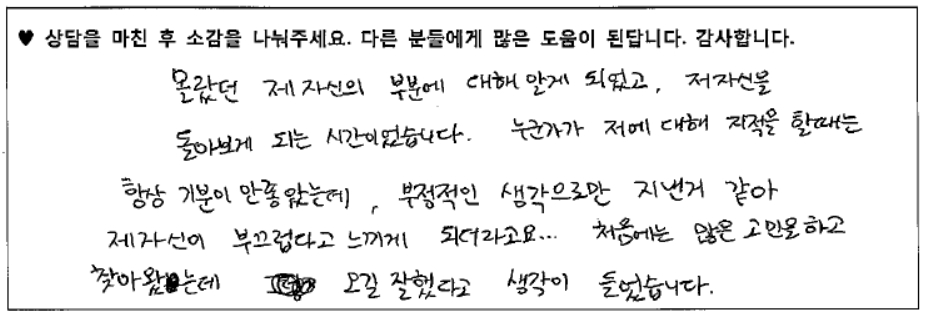 ♥ 상담을 마친 후 소감을 나눠주세요. 다른 분들에게 많은 도움이 된답니다. 감사합니다.
몰랐던 제 자신의 부분에 대해 알게 되었고, 저자신을
돌아보게 되는 시간이었습니다. 누군가가 저에 대해 지적을 할때는
항상 기분이 안좋았는데, 부정적인 생각으로만 지낸거 같아
제자신이 부끄럽다고 느끼게 되더라고요... 처음에는 많은 고민을하고
찾아왔는데 오길 잘했다고 생각이 들었습니다.